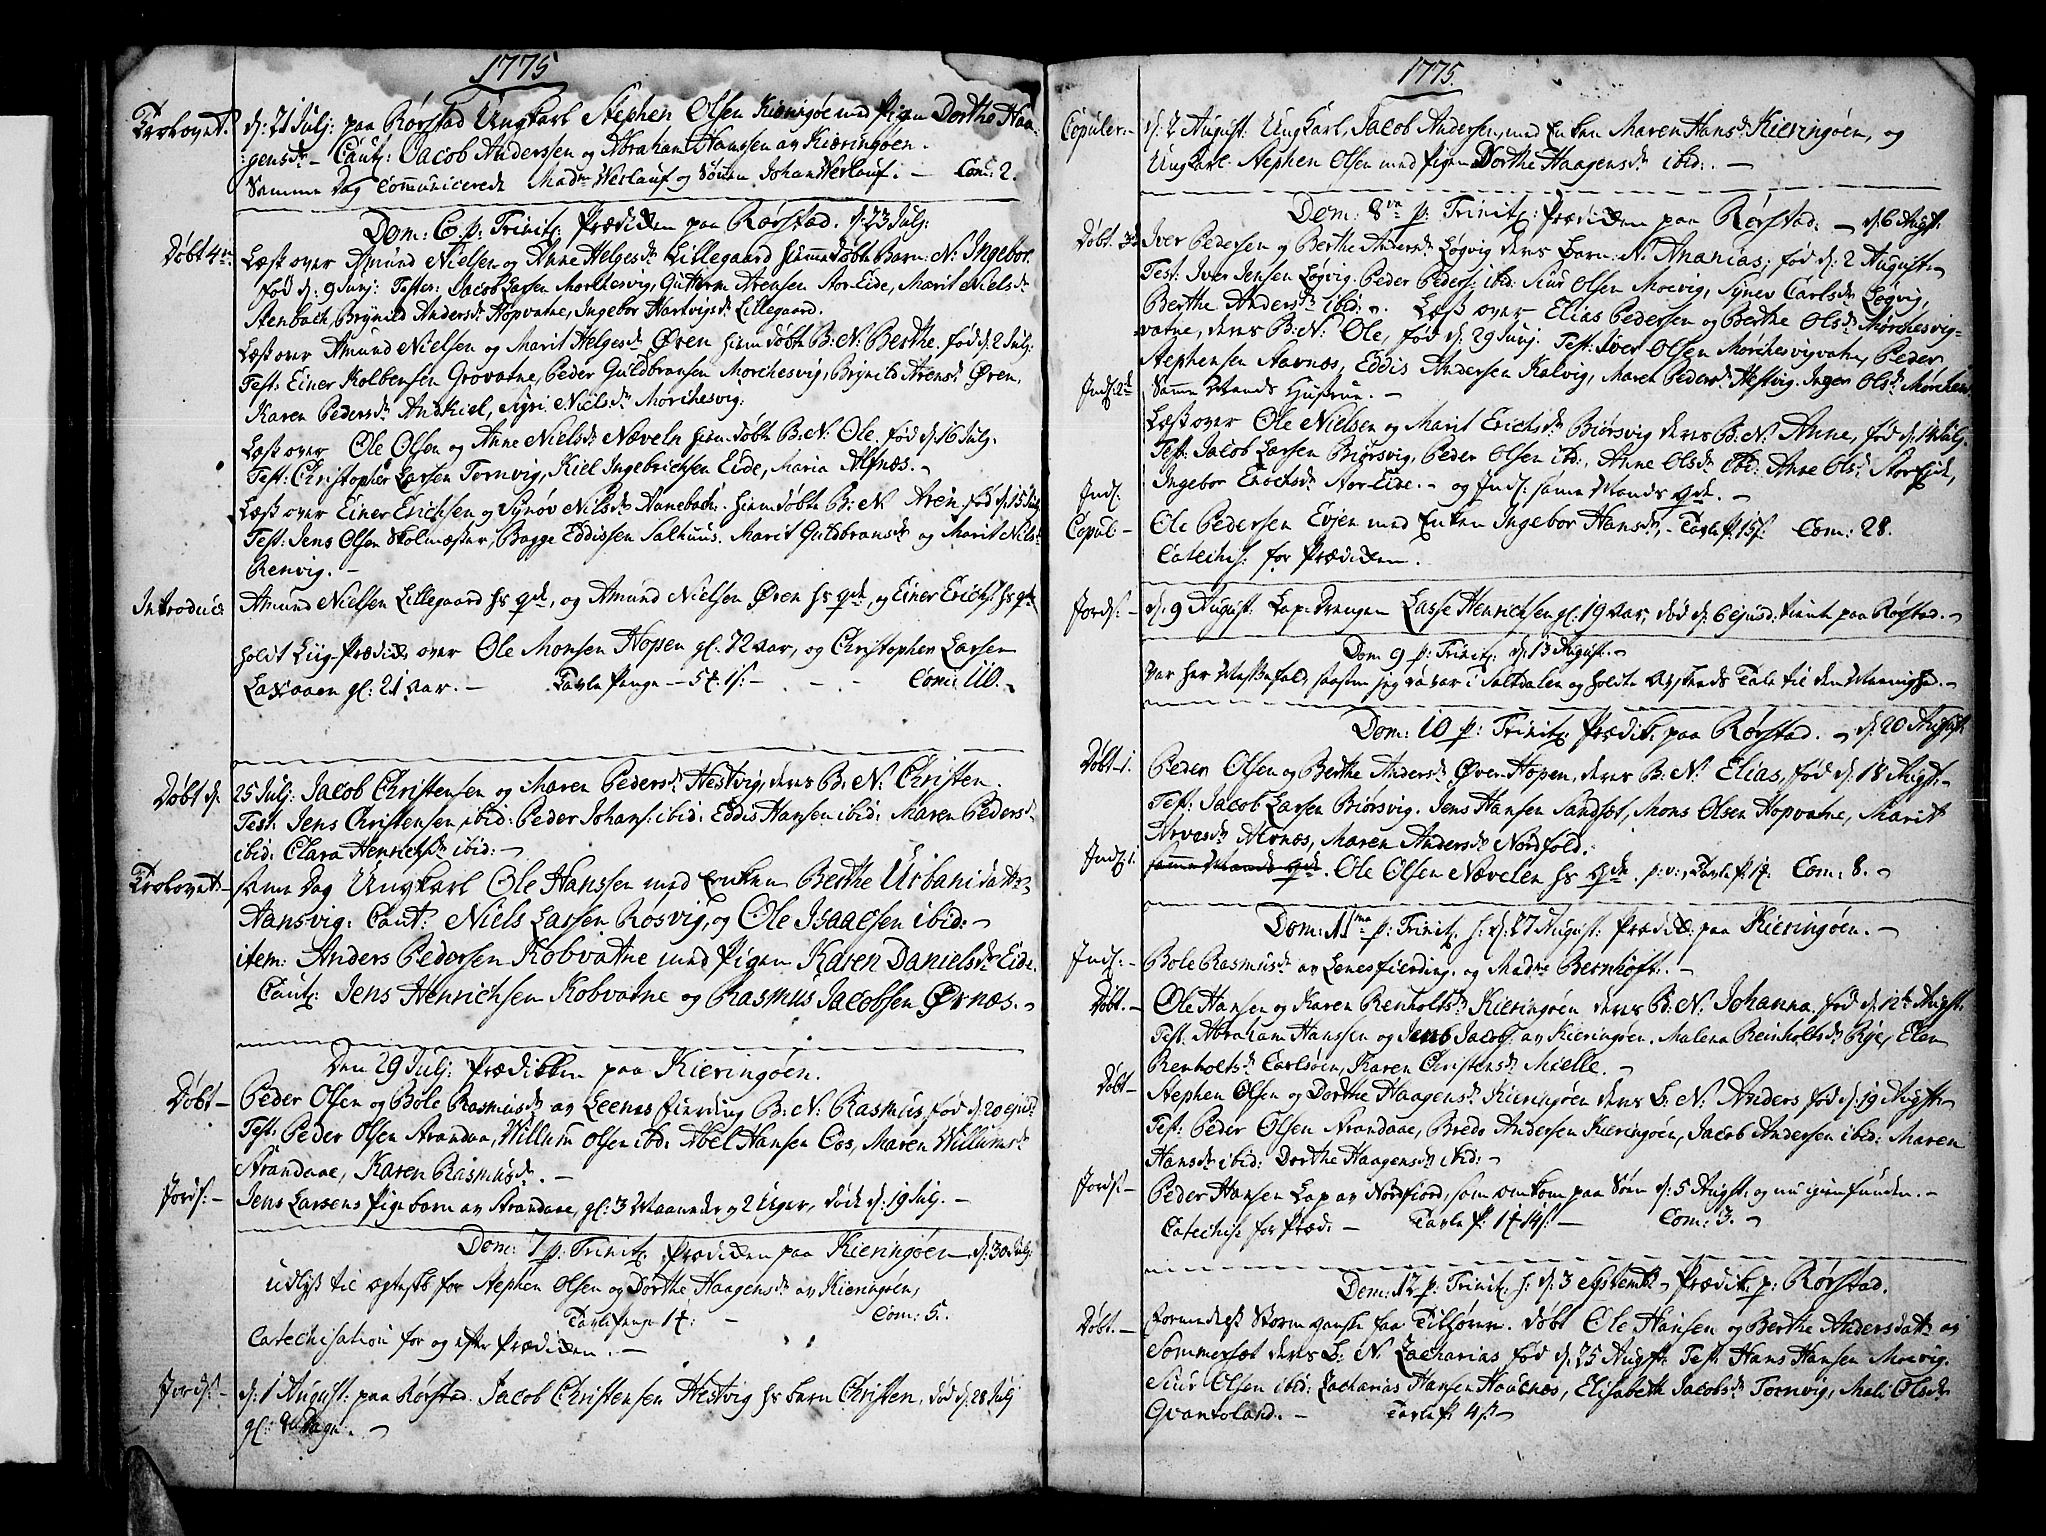 1775
Trolovet. d: 21 Julj: paa Rørstad Ungkarl Stephen Olsen Kieringøe med Pigen Dorthe Haa-
gensdr – Caut: Jacob Anderssen og Abraham Hanssen av Kieringøen.
Samme Dag Communicerede Madme Werlauf og Sønen Johan Werlauf. – Com: 2.
Dom: 6. p: Trinit: Prædiken paa Rørstad. d: 23 Julj:
Døbt 4re. Læst over Amund Nielsen og Anne Helgesdr Lillegaard hiemedøbte Barn: N: Ingebor.
fød d: 9 Junj: Tester: Jacob Larsen Morchesvig, Guttorm Arensen Stor-Eide, Marit Nielsdr
Stenbach, Brynild Andersdr Hopvatne, Ingebor Hartvigsdr Lillegaard.
Læst over Amund Nielsen og Marit Helgesdr Øren hiemdøbte B: N: Berthe, fød d: 2 Julj:
Test: Einer Kolbensen Grovatne, Peder Guldbransen Morchesvig, Brynild Arensdr Øren,
Karen Pedersdr Andkiel, Sigri Nielsdr Morchesvig:
Læst over Ole Olsen og Anne Nielsdr Næveln hiemdøbte B: N: Ole. fød d: 16 Julj:
Test: Christopher Larsen Tornvig, Kiel Ingebrichsen Eide, Maria Alfnæs. –
Læst over Einer Erichsen og Synøv Nielsdr Nanebach: hiemdøbte B: N Aren fød d: 15 Julj
Test: Jens Olsen Skolmester, Bagge Eddissen Salhuus. Marit Guldbransdr og Marit Nilsdr
Renvig. –
Introduce Amund Nielsen Lillegaard hs qde, og Amund Nielsen Øren hs qde, og Einer Erichs: hs qde
holdt Liig-Prædik over Ole Monsen Hopen gl: 72 Aar, og Christopher Larsen
Laxaaen gl: 21 Aar. – Tavle Penge – 5 – 1 s: – Com: 110.
Døbt d: 25 Julj: Jacob Christensen og Maren Pedersdr Hestvig, deres B: N: Christen.
Test: Jens Christensen ibid: Peder Johans: ibid: Eddis Hansen ibid: Maren Pedersdr
ibid: Clara Henrichsdr ibid: –
Trolovet – same Dag Ungkarl Ole Hanssen med Enken Berthe Urbanidatter
Tansvig: Caut: Niels Larsen Rosvig, og Ole Isaacsen ibid: –
item: Anders Pedersen Kobvatne med Pigen Karen Danielsdr Eide.
Caut: Jens Henrichsen Kobvatne og Rasmus Jacobsen Ørnæs. –
Den 29 Julj: Prædiken paa Kieringøen.
Døbt – Peder Olsen og Bole Rasmusdr av Leenes fierding B: N: Rasmus, fød d: 20 ejusd:
Test: Peder Olsen Arandaa, Willum Olsen ibid: Abel Hansen Cos, Maren Willumsdr
Arandaae, Karen Rasmusdr. –
Jords: – Jens Larsens Pigebarn av Arandaae, gl: 3 Maaneder og 2 Uger, døde d: 19 Julj. –
Dom: 7 p: Trinit: Prædiken paa Kieringøen d: 30 Julj:
udlyst til ægtesk: for Stephen Olsen og Dorthe Haagensdr av Kieringøen,
Tavlepenge 1 : – Com: 5.
Catechisation for og efter Prædiken. –
Jords: – d: 1 August: paa Rørstad. Jacob Christensen Hestvig hs barn Christen, død d: 28 Julj
gl: Dage. –
1775.
Copuler: – d: 2 August: Ungkarl, Jacob Andersen, med Enken Maren Hansdr Kieringøen, og
Ungkarl Stephen Olsen med Pigen Dorthe Haagensdr ibid: –
Dom: 8va p: Trinit: Prædiken paa Rørstad: – d: 6 August:
Døbt. Iver Pedersen og Berthe Andersdr Løgvig deres Barn: N: Ananias, fød d: 2 August: –
Test: Iver Jensen Løgvig. Peder Peders: ibid: Siur Olsen Moevig, Synev Carlsdr Løgvig,
Berthe Andersdr ibid: –. Læst over Elias Pedersen og Berthe Olsdr Mørchesvig-
vatne, deres B: N: Ole, fød d: 29 Junj: Test: Iver Olsen Mørchesvigvatne, Peder
Stephensen Navnæs, Eddis Andersen Kalvig, Maren Pedersdr Hestvig. Inger Olsdr Mørchesv:
Ind: 2de Same Mands Hustrue. –
Læst over Ole Nielsen og Marit Erichsdr Biørsvig deres B: N: Anne, fød d: 14 Julj:
Test: Jacob Larsen Biørsvig, Peder Olsen ibid:, Anne Olsdr ibid: Anne Olsdr StorEide,
Ind: Ingebor Enochsdr Stor-Eide. – og Ind: same Mands qde. –
Copul: – Ole Pedersen Evjen med Enken Ingebor Hansdr, – Tavle P: 15 s: Com: 28.
Catechis: for Prædiken.
Jords: – d: 9 August: Lap-Drengen Lasse Henrichsen gl: 19 Aar, død d: 6 ejusd: tient paa Rørstad. –
Dom 9 p: Trinit: d: 13 August: –
Var her Messefald, saasom jeg da var i Saltdalen og holdte Afskeds Tale til den Meenighed. –
Dom: 10 p: Trinit: Prædik: paa Rørstad. – d: 20 August:
Døbt – 1. Peder Olsen og Berthe Andersdr Øvre Hopen, deres B: N: Elias, fød d: 18 Aug:st –
Test: Jacob Larsen Biørsvig. Jens Hansen Sandsæt, Mons Olsen Hopvatne, Marit
Arvasdr Alvnæs, Maren Andersdr Nordfold.
Ind: 1. same Mands qde. Ole Olsen Nævelen hs qde. p: v:, Tavle P: 1 . Com: 8. –
Dom: 11ma p: Trinit. s: d: 27 August: Prædik: paa Kieringøen. –
Ind: – Bole Rasmusdr av Lenesfierding. og Madme Bernhoft: –
Døbt. – Ole Hansen og Karen Renholtsdr Kieringøen deres B: N: Johanna. fød d: 12te Augst:
Test. Abraham Hanssen og Jens Jacobs: av Kieringøen. Malena Reinholtsdr Rye, Elen
Renholtsdr Carlsøen, Karen Christensdr Mielle. –
Døbt – Stephen Olsen og Dorthe Haagensdr Kieringøen deres B: N: Anders fød d: 19 Augst: –
Test: Peder Olsen Arandaae, Bredo Andersen Kieringøen, Jacob Andersen ibid: Maren
Hansdr ibid: Dorthe Haagensdr ibid: –
Jords: – Peder Hansen Lap av Nordfiord, som omkom paa Søen d: 5 Augst: og nu igien funden. –
Catechise for Præd: – Tavle P: 1 14 s: – Com: 3. –
Dom: 12 p: Trinit. s: d: 3 Septembr – Prædik: p: Rørstad.
Døbt. – formedelst Storm ganske faa Tilhørere. Døbt Ole Hansen og Berthe Andersdatter av
Sommersæt deres B: N: Zacharias fød d: 25 Augst: Test: Hans Hansen Moevig.
Siur Olsen ibid: Zacharias Hansen Houenæs, Elisabeth Jacobsdr Tornvig, Mali Olsdr
Qvantoland. – Tavle P: 4 s –